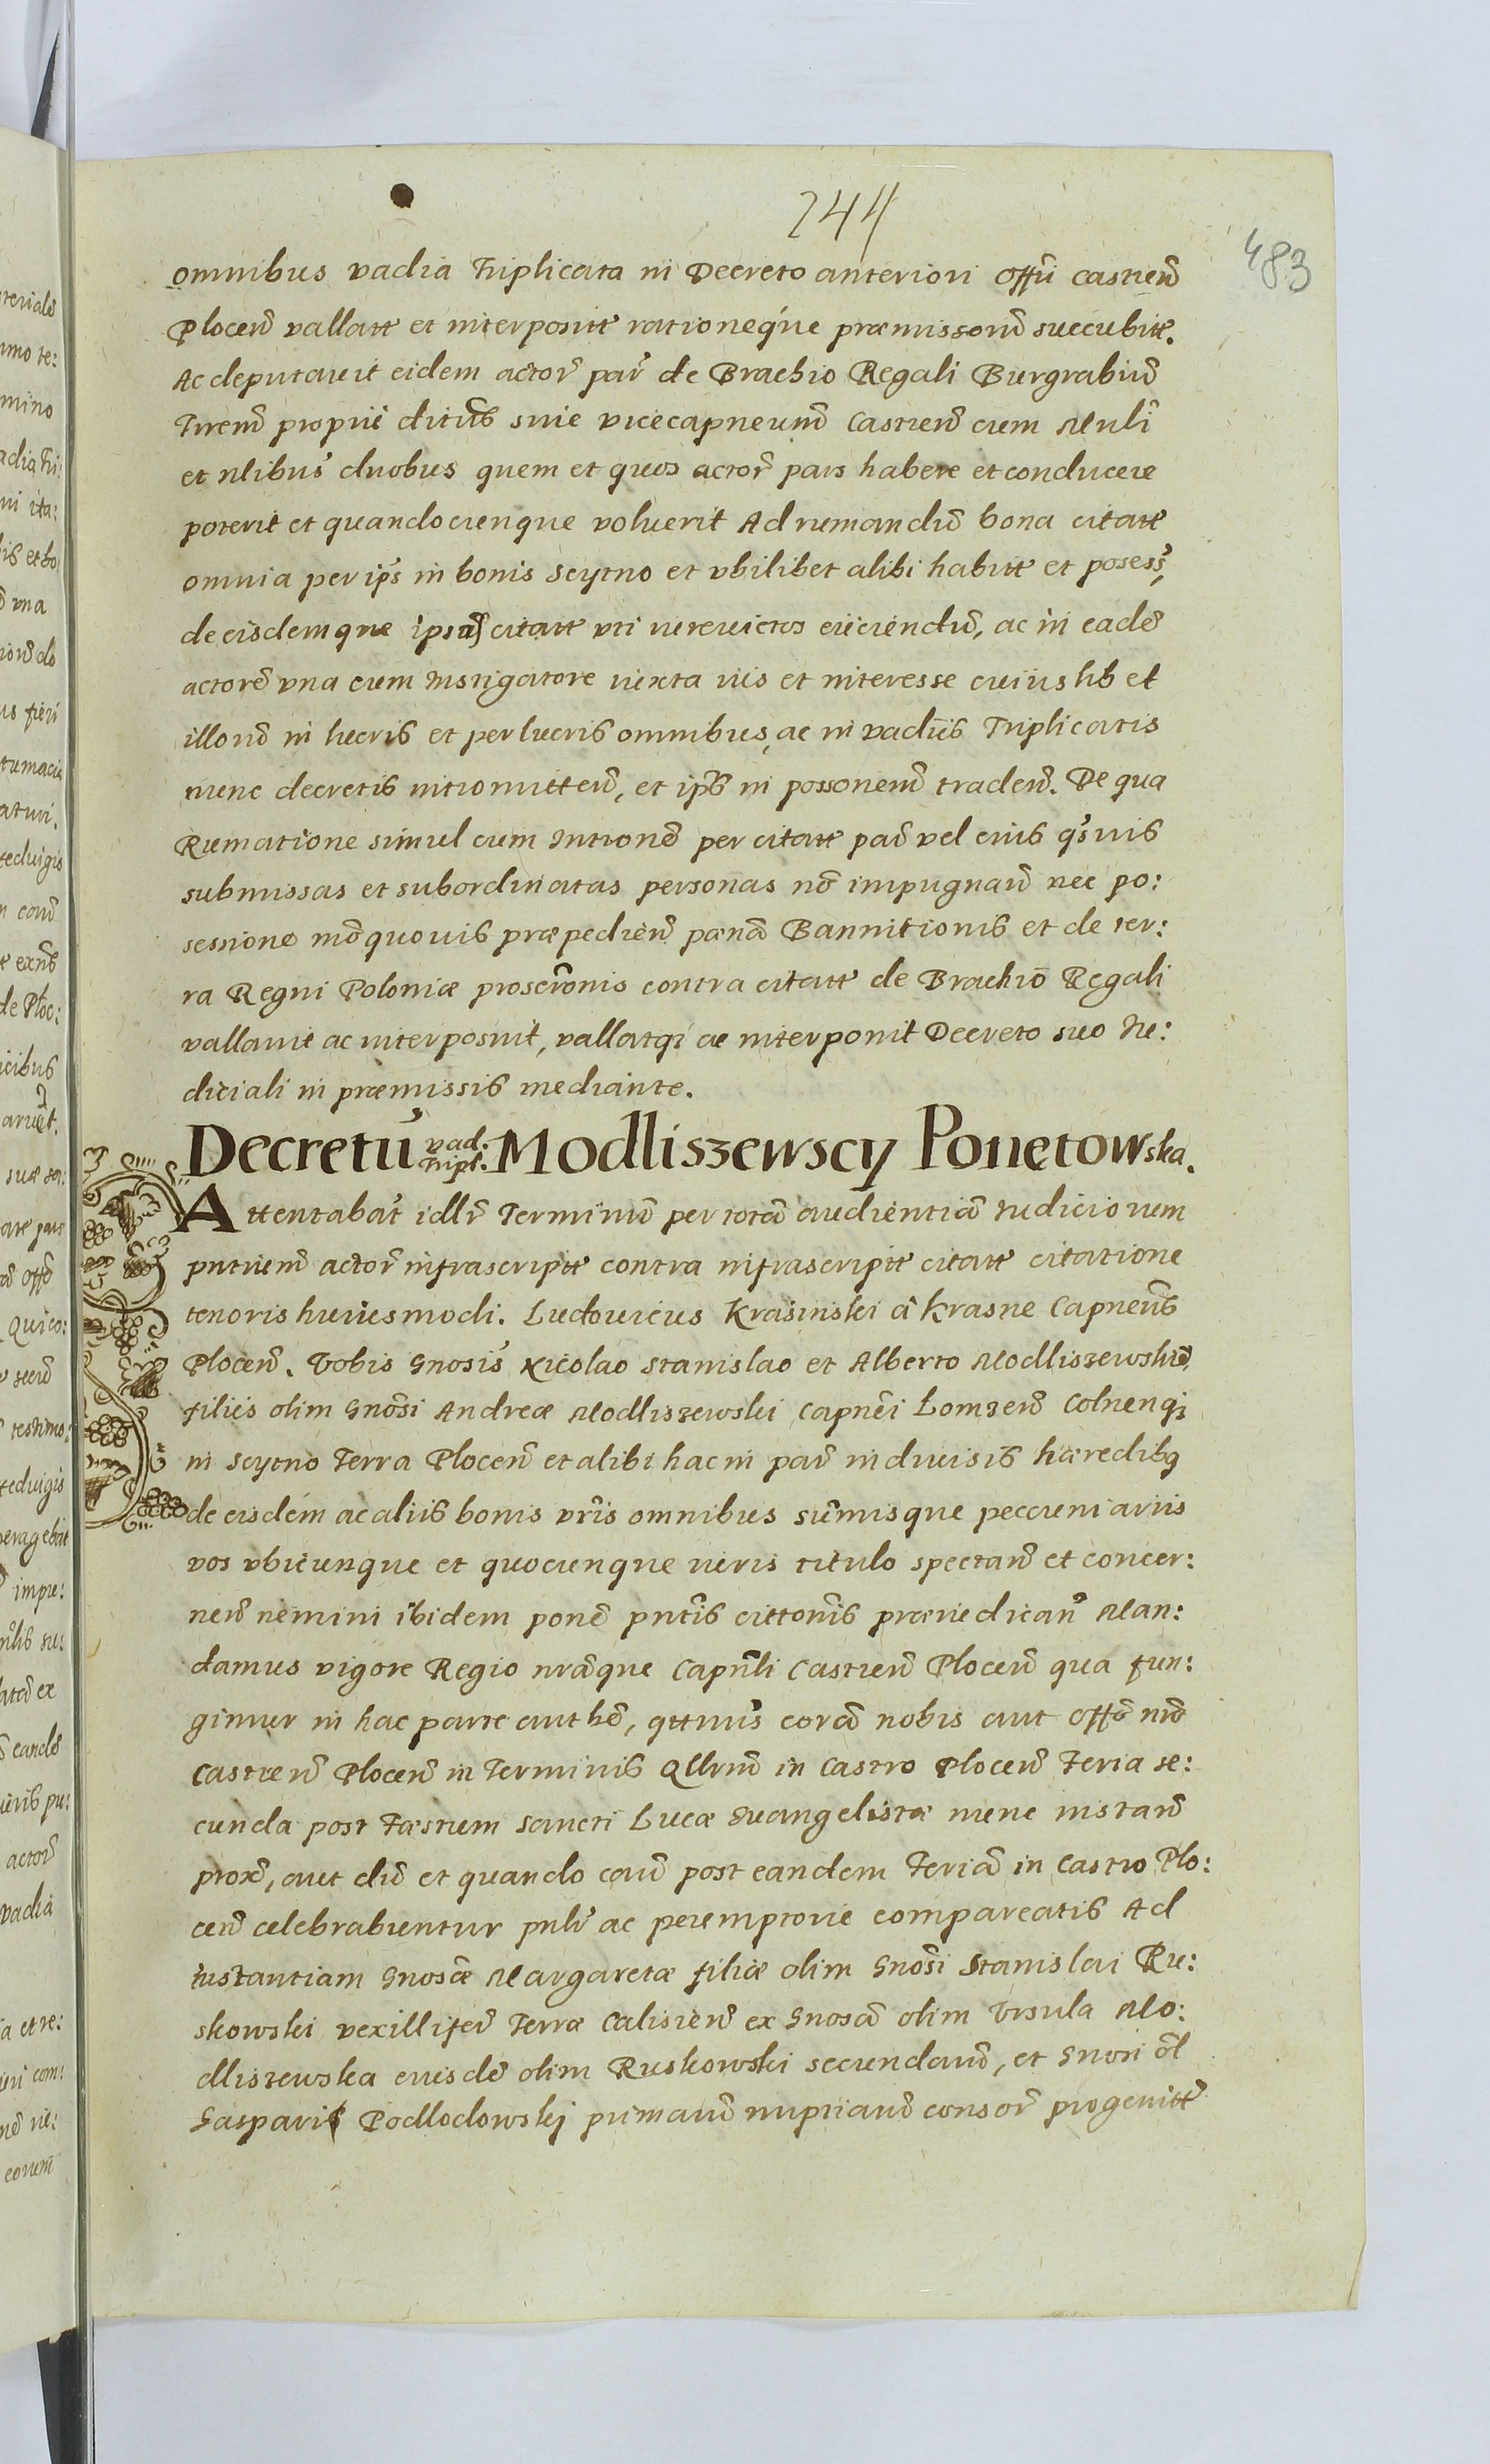 244
483
omnibus vadia Triplicata in Decreto anteriori Offii castren̄
Plocen̄ vallatt et interpositt rationeq́ue præmissorū succubitt.
Ac deputauit eidem actor̄ par̄ de Brachio Regali Burgrabiū
Iuren̄ proprie dictūs siue vicecapneum̄ Castren̄ cum Mnli
et nlibus duobus quem et quos actor̄ pars habere et conducere
poterit et quandocunque voluerit Ad rumandū bona citatt
omnia per ips̄ in bonis Scytno et vbilibet alibi habitt et posess̄,
de eisdemque ipsas citatt vti iure victos eiiciendū, ac in eadē
actorē vna cum Instigatore iuxta vis et interesse cuiuslib et
illorū in lucris et perlucris omnibus, ac in vadiis Triplicatis
nunc decretis intromitten̄, et ips̄ in possonem̄ traden̄. De qua
Rumatione simul cum Intronē per citatt par̄ vel eius q̄suis
submissas et subordinatas personas nō impugnan̄ nec po:
sessione mō quouis præpedien̄ pœnā Bannitionis et de ter:
ra Regni Poloniæ proscr̄onis contra citatt de Brachiō Regali
vallauit ac interposuit, vallatqi ac interponit Decreto suo Iu:
diciali in præmissis mediante.
Decretū vad. Tripl. Modliszewscy Ponetowska.
Attentabat idlr̄ Terminū per totā audientiā Iudiciorum
pntium̄ actor̄ infrascriptt contra infrascriptt citatt citatione
tenoris huiusmodi. Ludouicus Krasinski a Krasne Capneūs
Plocen̄. Vobis Gnosis̄ Nicolao Stanislao et Alberto Modliszewskiē,
filiis olim Gnōsi Andreæ Modliszewski Capnēi Lomzen̄ Colnenqi
in Scytno Terra Plocen̄ et alibi hac in par̄ indiuisis hæredibq
de eisdem ac aliis bonis vr̄is omnibus sum̄isque peccuniariis
vos vbicunque et quocunque iuris titulo spectan̄ et concer:
nen̄ nemini ibidem ponē pntīs cittonīs præiudican̄ Man:
damus vigore Regio nrāque Capnli Castren̄ Plocen̄ qua fun:
gimur in hac parte authē, qttnus̄ corā nobis aut offō nrō
Castren̄ Plocen̄ in Terminis Qllrum̄ in Castro Plocen̄ Feria se:
cunda post Fæstum Sancti Lucæ Euangelistæ nunc instan̄
proxē, aut dū et quando eaū post eandem Feriā in Castro Plo:
cen̄ celebrabuntur pnlr̄ ac peremptorie compareatis Ad
instantiam Gnosæ Margaretæ filiæ olim Gnōsi Stanislai Ru:
skowski vexilliferī Terræ Calisien̄ ex Gnosā olim Vrsula Mo:
dliszewska eiusdē olim Ruskowski secundaū, et Gnosi ōl
Gasparis Podlodowskj primaū nuptiaū consor̄ progenitt